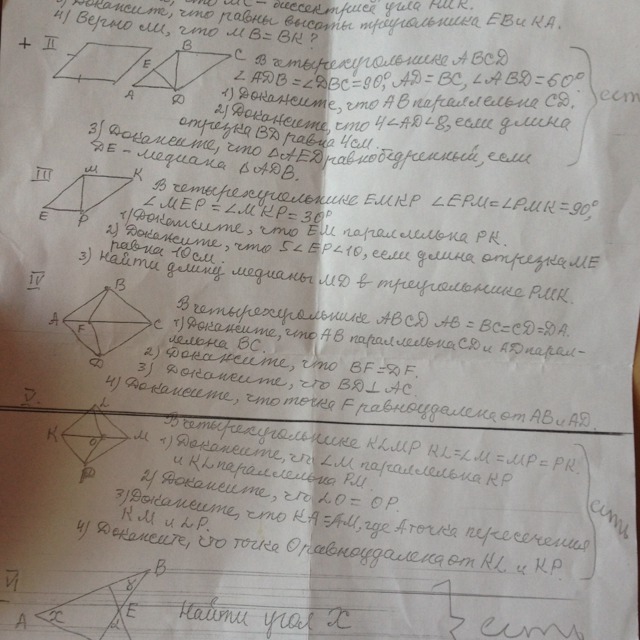 4) Верно ли, что MB = BK?
3) Докажите, что равны высоты треугольника EB и KA.
+ II
B C E A D
В четырехугольнике ABCD
∠ADB = ∠DBC = 90°, AD = BC, ∠ABD = 60°
1) Докажите, что AB параллельна CD.
2) Докажите, что 4<AD<8, если длина
отрезка BD равна 4см.
3) Докажите, что △AED равнобедренный, если
DE - медиана △ADB.
есть
III
M K E P
В четырехугольнике EMKP ∠EPM = ∠PMK = 90°,
∠MEP = ∠MKP = 30°
1) Докажите, что EM параллельна PK.
2) Докажите, что 5<EP<10, если длина отрезка ME
равна 10см.
3) Найти длину медианы MD в треугольнике PMK.
IV
B A F C D
В четырехугольнике ABCD AB = BC = CD = DA.
1) Докажите, что AB параллельна CD и AD парал-
лельна BC.
2) Докажите, что BF = DF.
3) Докажите, что BD⊥AC.
4) Докажите, что точка F равноудалена от AB и AD.
V.
L K O M P
В четырехугольнике KLMP KL = LM = MP = PK.
1) Докажите, что LM параллельна KP
и KL параллельна PM.
2) Докажите, что LO = OP.
3) Докажите, что KA = AM, где A точка пересечения
KM и LP.
4) Докажите, что точка O равноудалена от KL и KP.
есть
VI
B A x E
Найти угол X
есть